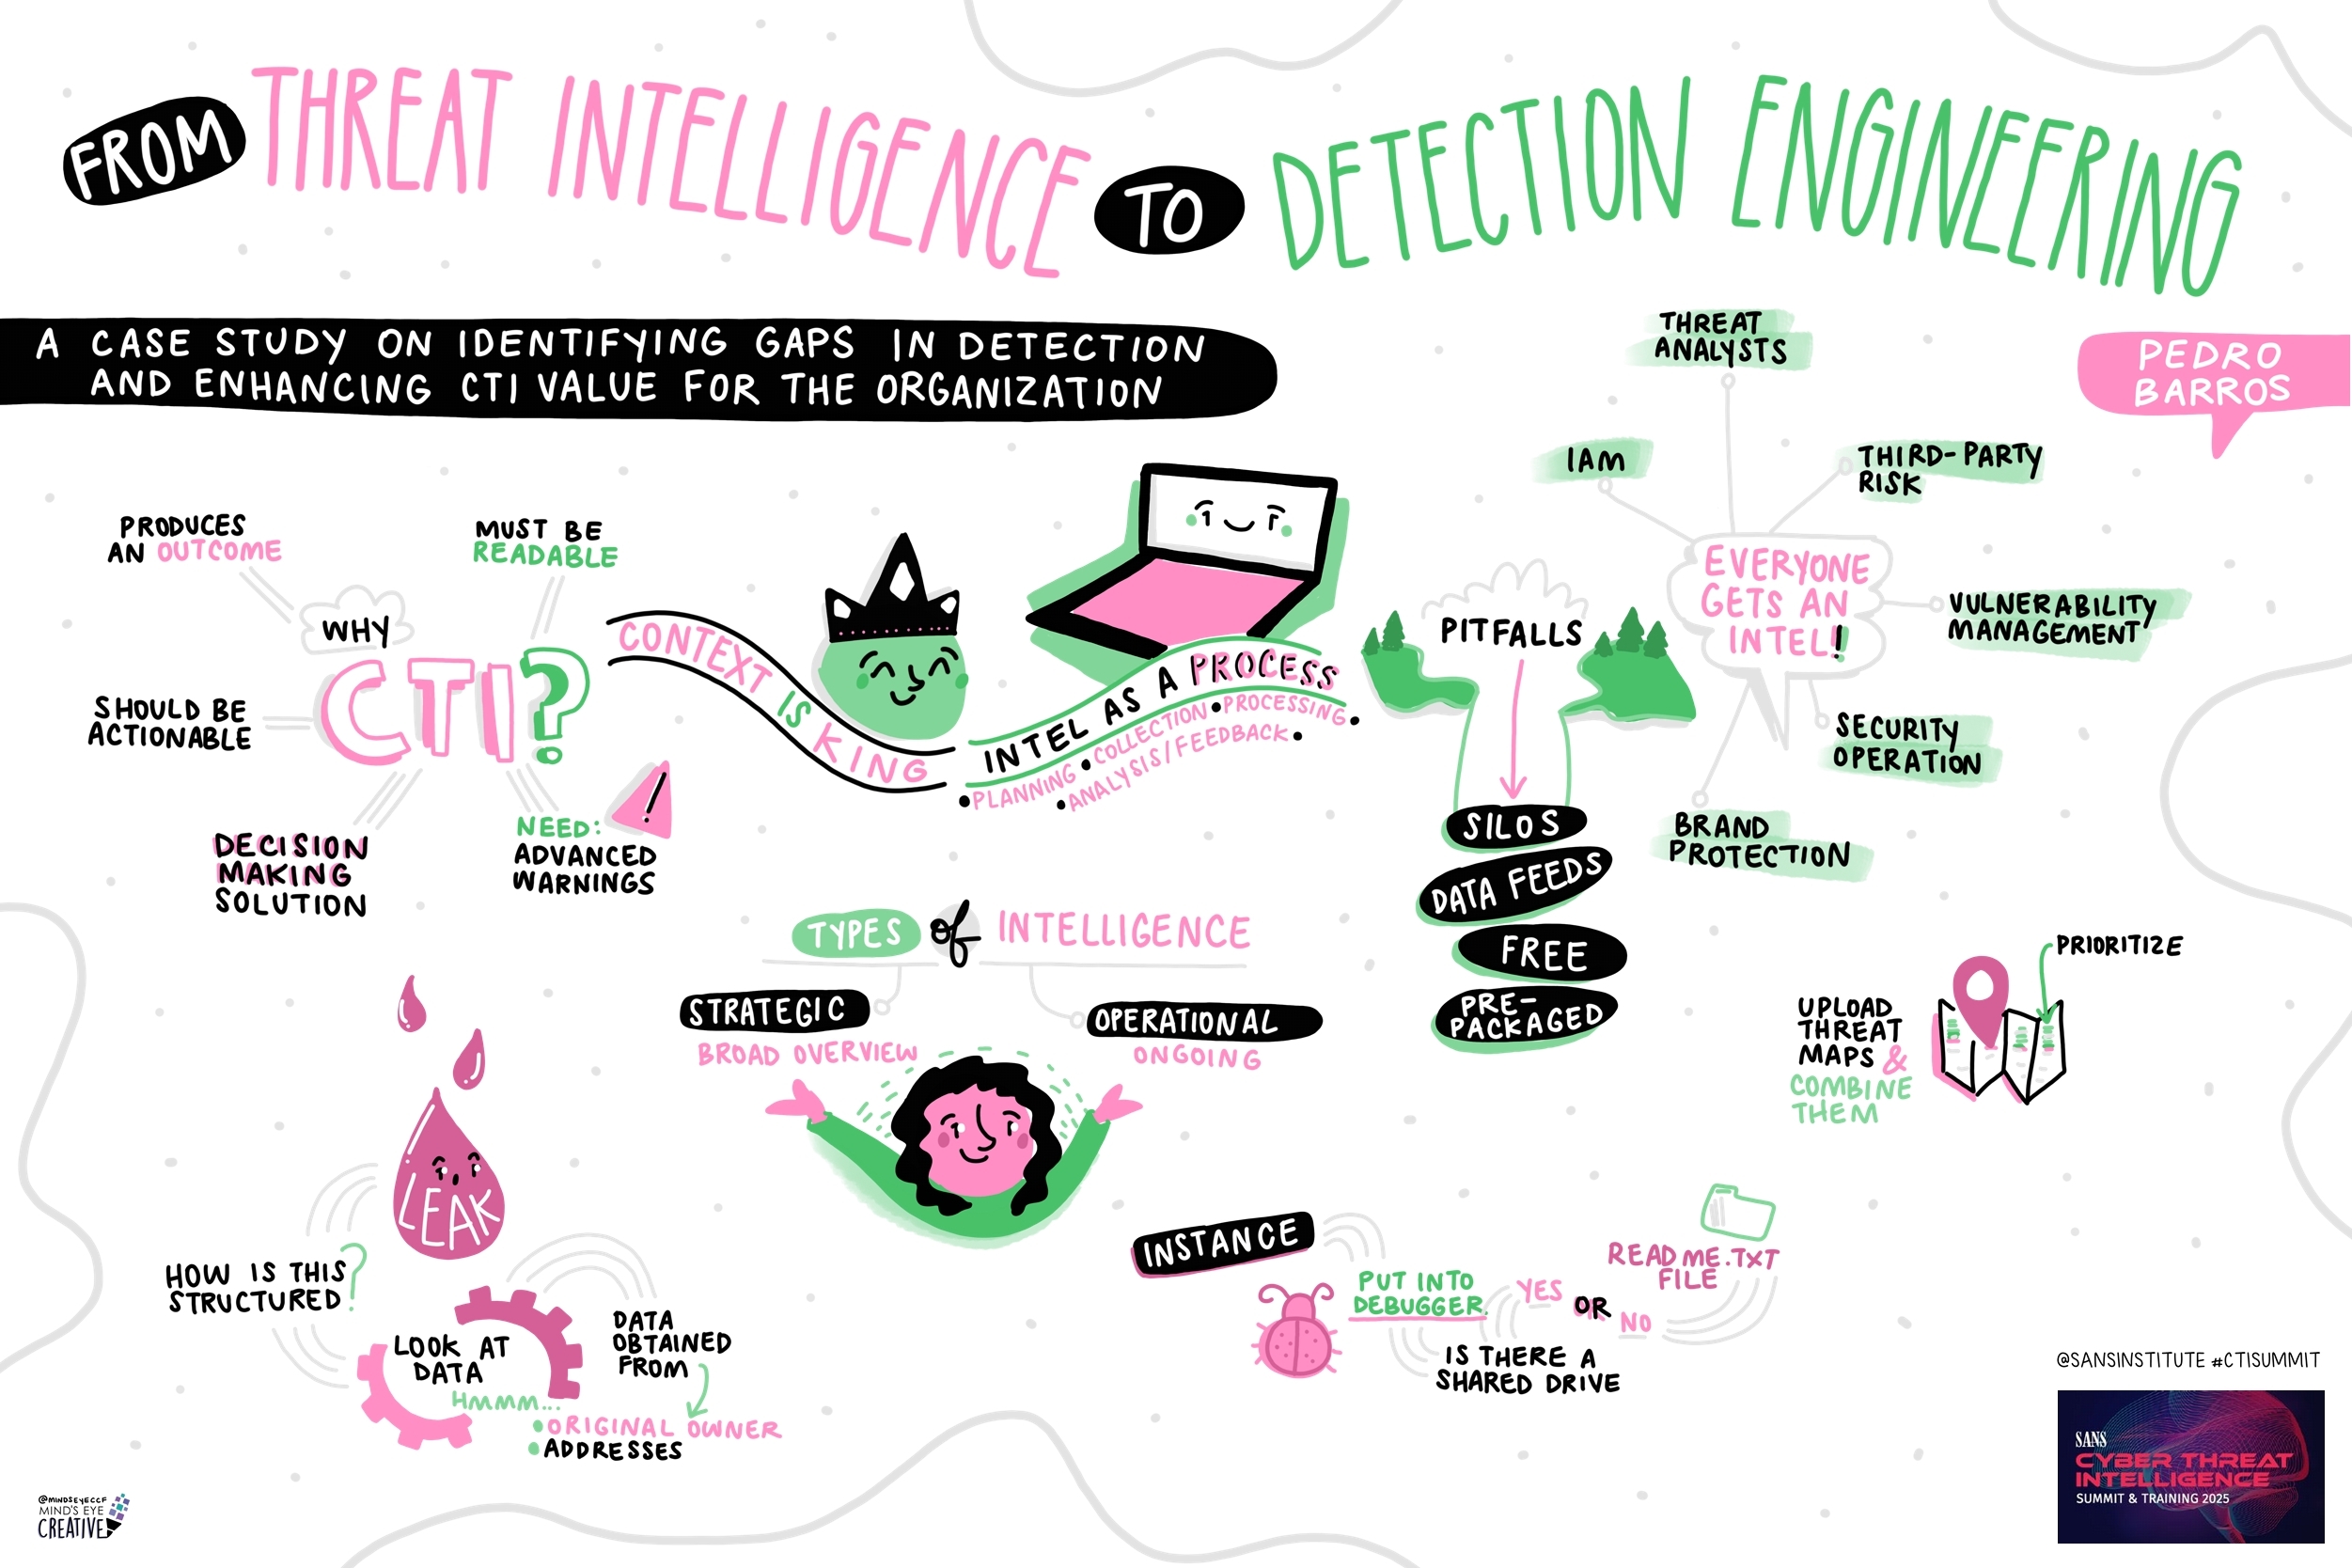 FROM THREAT INTELLIGENCE TO DETECTION ENGINEERING
A CASE STUDY ON IDENTIFYING GAPS IN DETECTION
AND ENHANCING CTI VALUE FOR THE ORGANIZATION
PEDRO
BARROS
PRODUCES
AN OUTCOME
MUST BE
READABLE
WHY
CTI?
SHOULD BE
ACTIONABLE
DECISION
MAKING
SOLUTION
NEED:
ADVANCED
WARNINGS
!
CONTEXT IS KING
INTEL AS A PROCESS
•PLANNING •COLLECTION •PROCESSING•
•ANALYSIS/FEEDBACK•
PITFALLS
SILOS
DATA FEEDS
FREE
PRE-
PACKAGED
EVERYONE
GETS AN
INTEL!
THREAT
ANALYSTS
IAM
THIRD-PARTY
RISK
VULNERABILITY
MANAGEMENT
SECURITY
OPERATION
BRAND
PROTECTION
TYPES of INTELLIGENCE
STRATEGIC
BROAD OVERVIEW
OPERATIONAL
ONGOING
UPLOAD
THREAT
MAPS &
COMBINE
THEM
PRIORITIZE
LEAK
HOW IS THIS
STRUCTURED?
LOOK AT
DATA
HMMM...
DATA
OBTAINED
FROM
•ORIGINAL OWNER
•ADDRESSES
INSTANCE
PUT INTO
DEBUGGER.
IS THERE A
SHARED DRIVE
YES OR NO
READ ME.TXT
FILE
@SANSINSTITUTE #CTISUMMIT
SANS
CYBER THREAT
INTELLIGENCE
SUMMIT & TRAINING 2025
@MINDSEYECCF
MIND'S EYE
CREATIVE